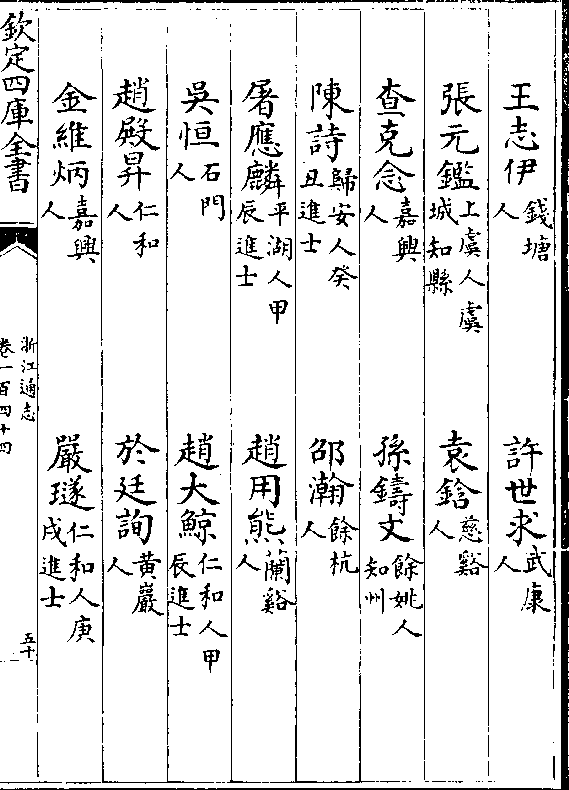 王志伊錢塘人 許世求武康人
張元鑑上虞人虞城知縣 袁鋡慈谿人
查克念嘉興人 孫鑄文餘姚人知州
陳詩歸安人癸丑進士 邵瀚餘杭人
屠應麟平湖人甲辰進士 趙用熊蘭谿人
吳恒石門人 趙大鯨仁和人甲辰進士
趙殿昇仁和人 於廷詢黃巖人
金維炳嘉興人 嚴璲仁和人庚戌進士
欽定四庫全書
浙江通志
卷一百四十四
五十